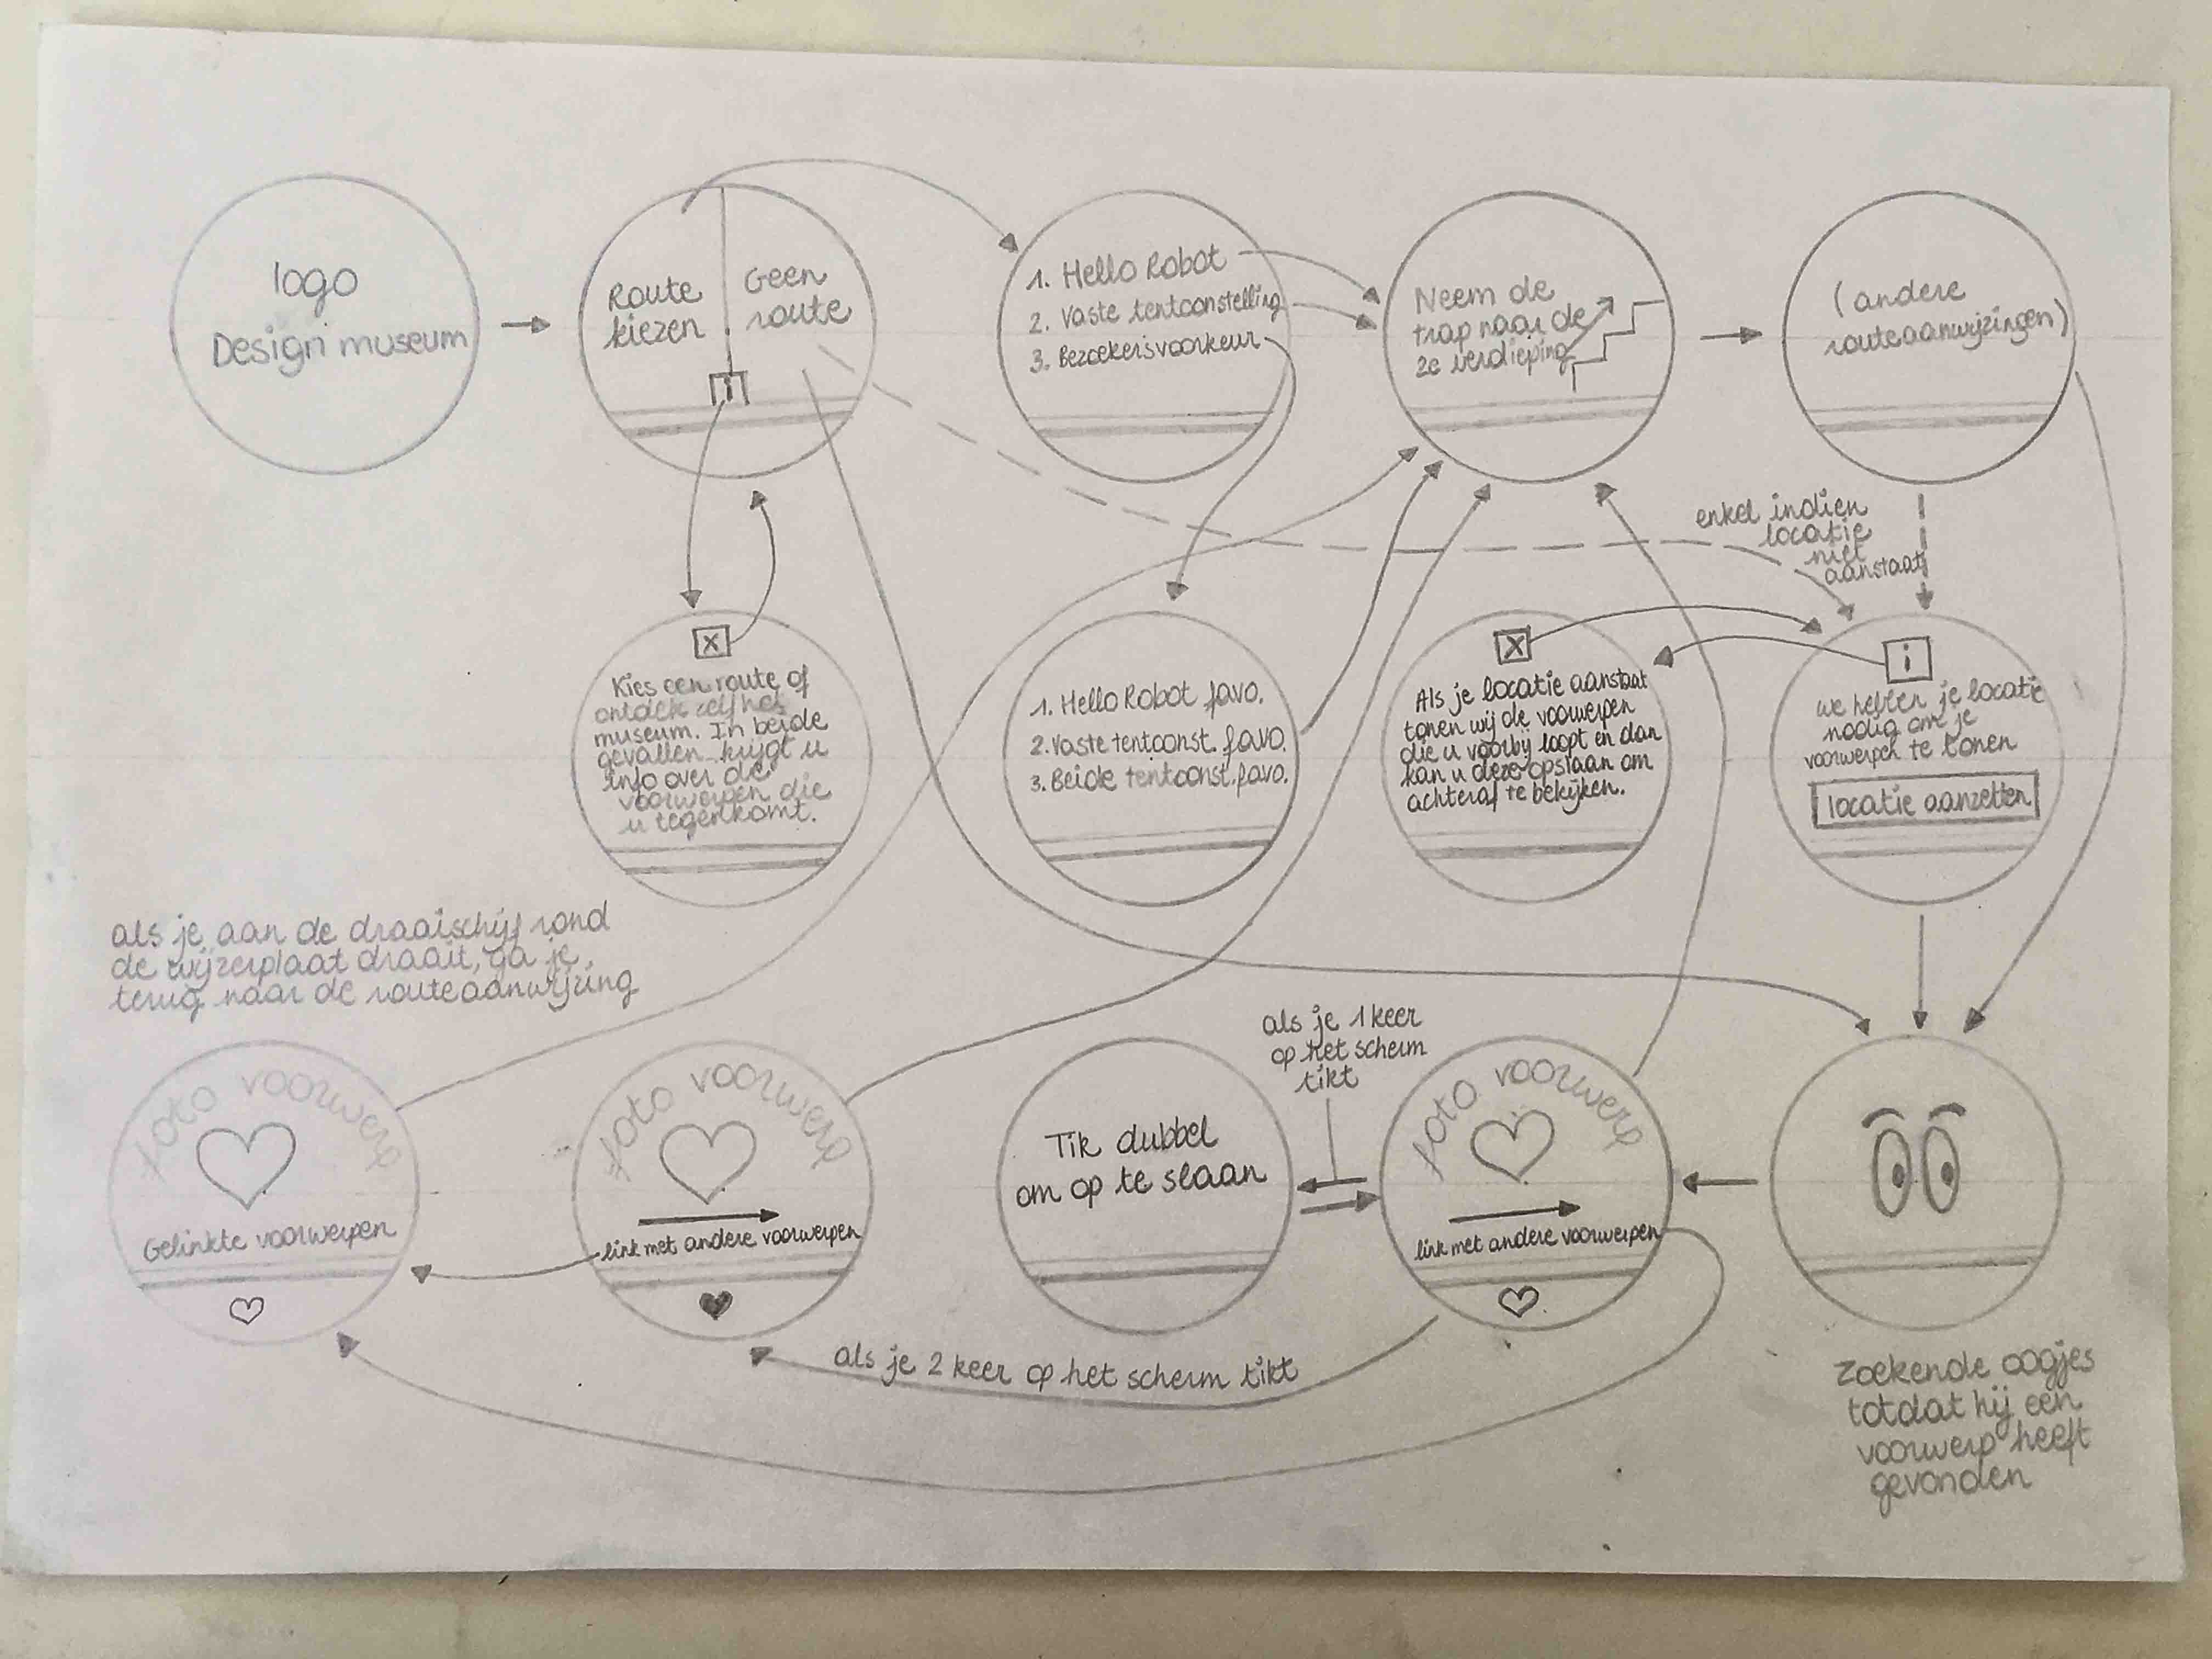 logo
Design museum
Route
kiezen
Geen
route
i
1. Hello Robot
2. Vaste tentoonstelling
3. Bezoekersvoorkeur
Neem de
trap naar de
2e verdieping
(andere
routeaanwijzingen)
enkel indien
locatie
niet
aanstaat
X
Kies een route of
ontdek zelf het
museum. In beide
gevallen krijgt u
info over de
voorwerpen die
u tegenkomt.
1. Hello Robot favo.
2. Vaste tentoonst. favo.
3. Beide tentoonst. favo.
X
Als je locatie aanstaat
tonen wij de voorwerpen
die u voorbij loopt en dan
kan u deze opslaan om
achteraf te bekijken.
i
we hebben je locatie
nodig om je
voorwerpen te tonen
locatie aanzetten
als je aan de draaischijf rond
de wijzerplaat draait, ga je
terug naar de routeaanwijzing
foto voorwerp
Gelinkte voorwerpen
foto voorwerp
link met andere voorwerpen
Tik dubbel
om op te slaan
als je 1 keer
op het scherm
tikt
foto voorwerp
link met andere voorwerpen
als je 2 keer op het scherm tikt
Zoekende oogjes
totdat hij een
voorwerp heeft
gevonden